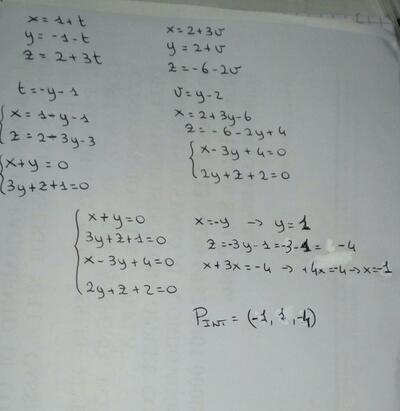 x = 1 + t
y = -1 - t
z = 2 + 3t
x = 2 + 3v
y = 2 + v
z = -6 - 2v
t = -y - 1
x = 1 - y - 1
z = 2 - 3y - 3
x + y = 0
3y + z + 1 = 0
v = y - 2
x = 2 + 3y - 6
z = -6 - 2y + 4
x - 3y + 4 = 0
2y + z + 2 = 0
x + y = 0
3y + z + 1 = 0
x - 3y + 4 = 0
2y + z + 2 = 0
x = -y → y = 1
z = -3y - 1 = -3 - 1 = -4
x + 3x = -4 → +4x = -4 → x = -1
P INT. = (-1, 1, -4)